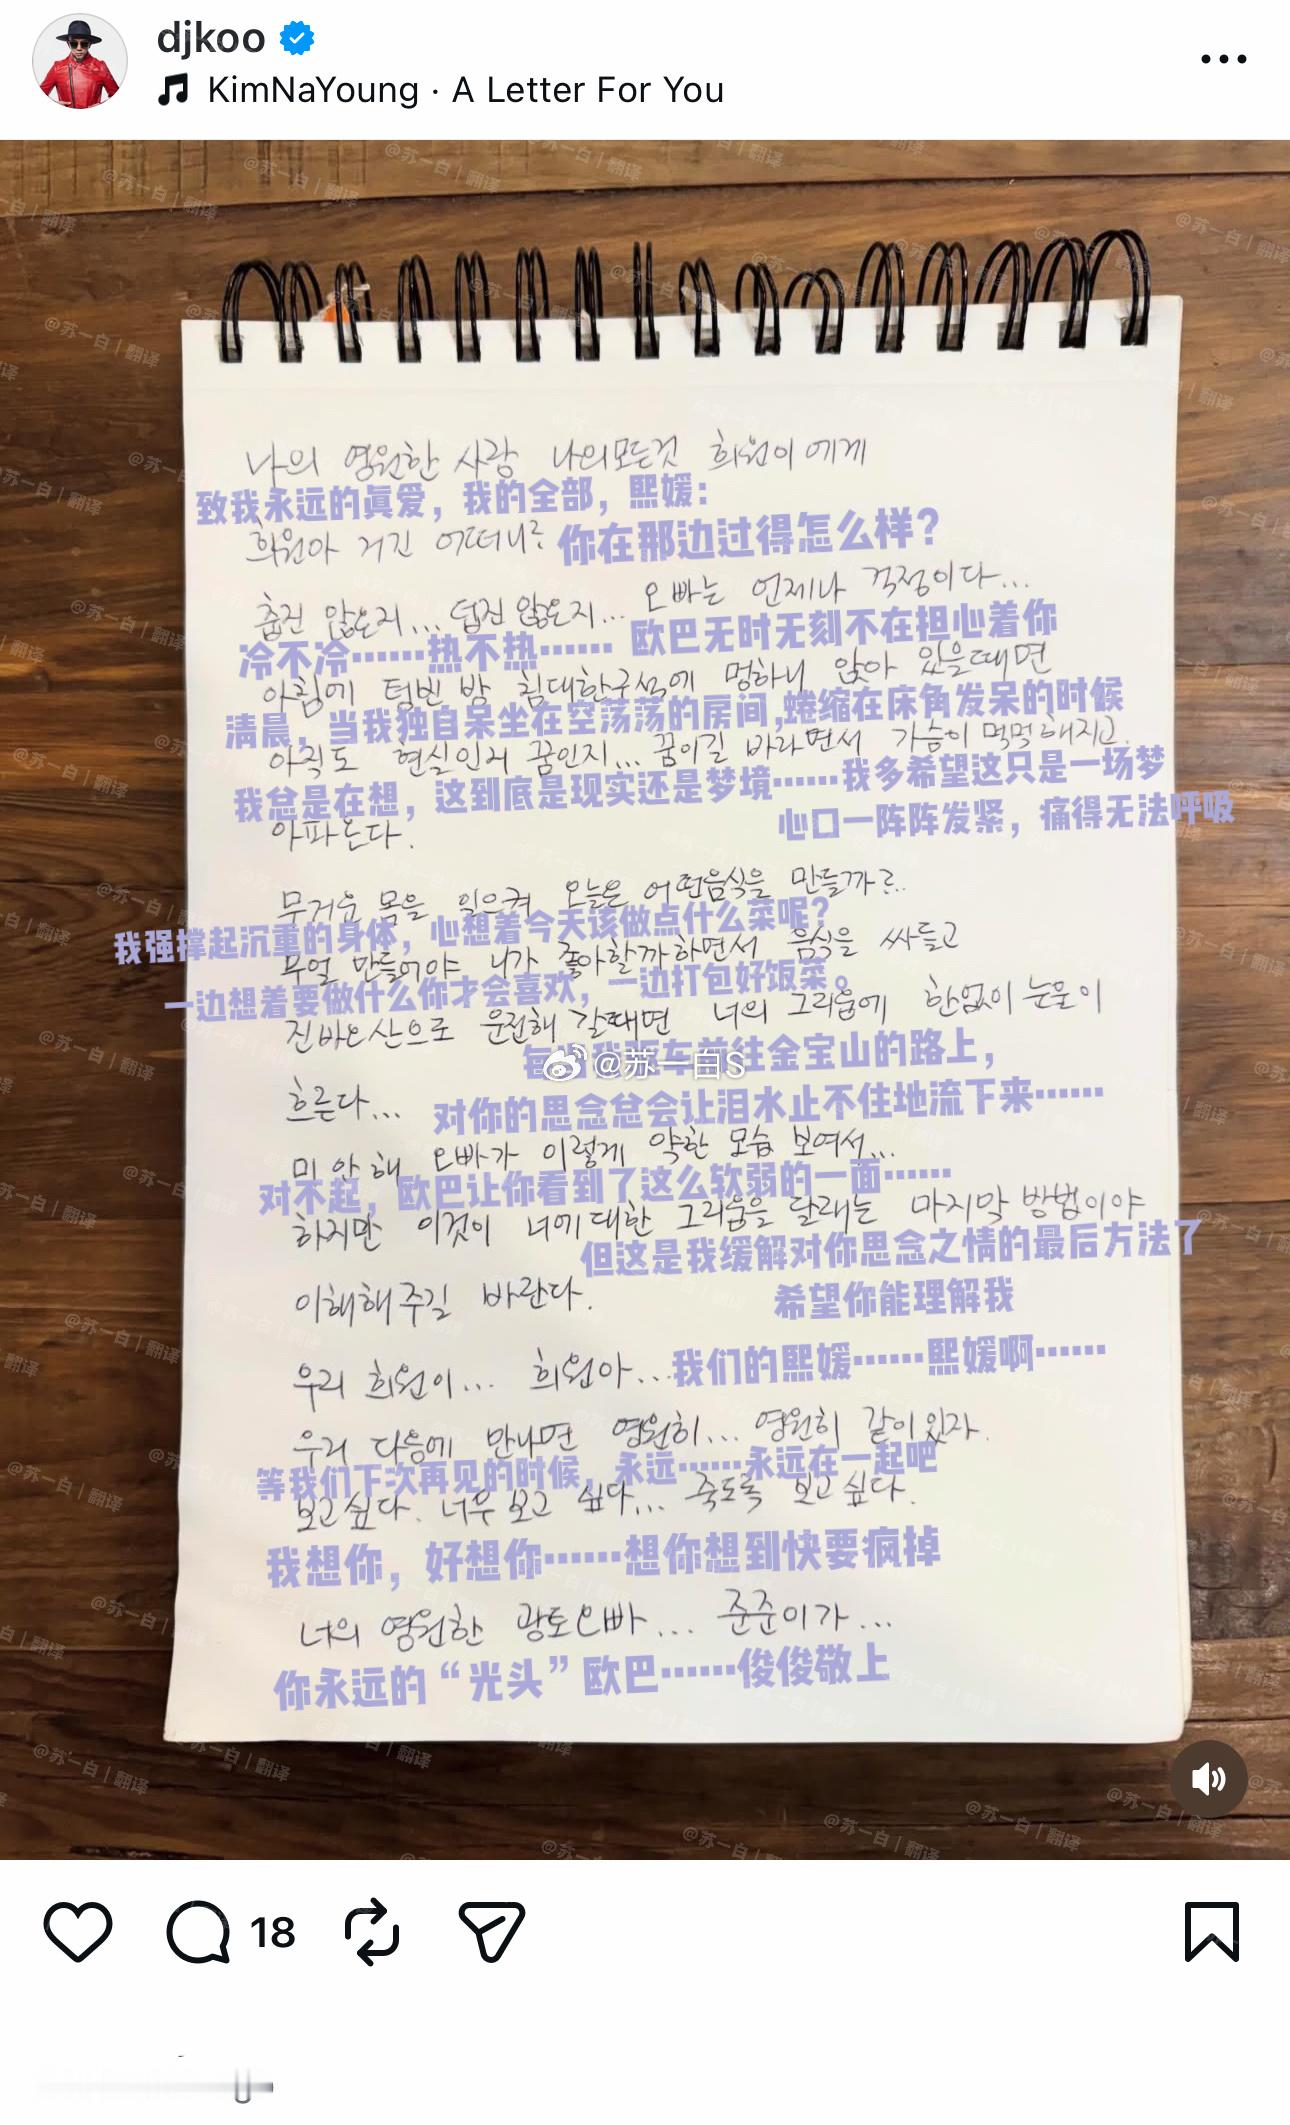 djkoo
KimNaYoung · A Letter For You
나의 영원한 사랑 나의모든것 희원이에게
致我永远的真爱，我的全部，熙媛：
희원아 거긴 어떠니?
你在那边过得怎么样？
춥진 않은지... 덥진 않은지... 오빠는 언제나 걱정이다...
冷不冷……热不热…… 欧巴无时无刻不在担心着你
아침에 텅빈 방 침대한구석에 멍하니 앉아 있을때면
清晨，当我独自呆坐在空荡荡的房间,蜷缩在床角发呆的时候
아직도 현실인거 꿈인지... 꿈이길 바라면서 가슴이 먹먹해지고
我总是在想，这到底是现实还是梦境……我多希望这只是一场梦
아파온다.
心口一阵阵发紧，痛得无法呼吸
무거운 몸을 일으켜 오늘은 어떤음식을 만들까?..
我强撑起沉重的身体，心想着今天该做点什么菜呢？
무얼 만들어야 니가 좋아할까하면서 음식을 싸들고
一边想着要做什么你才会喜欢，一边打包好饭菜。
진바오산으로 운전해 갈때면 너의 그리움에 한없이 눈물이
每当我驱车前往金宝山的路上，
@苏一白S
흐른다...
对你的思念总会让泪水止不住地流下来……
미안해 오빠가 이렇게 약한 모습 보여서...
对不起，欧巴让你看到了这么软弱的一面……
하지만 이것이 너에대한 그리움을 달래는 마지막 방법이야
但这是我缓解对你思念之情的最后方法了
이해해주길 바란다.
希望你能理解我
우리 희원이... 희원아...
我们的熙媛……熙媛啊……
우리 다음에 만나면 영원히... 영원히 같이있자.
等我们下次再见的时候，永远……永远在一起吧
보고싶다. 너무 보고 싶다... 죽도록 보고싶다.
我想你，好想你……想你想到快要疯掉
너의 영원한 광토오빠... 준준이가...
你永远的“光头”欧巴……俊俊敬上
@苏一白 | 翻译
18